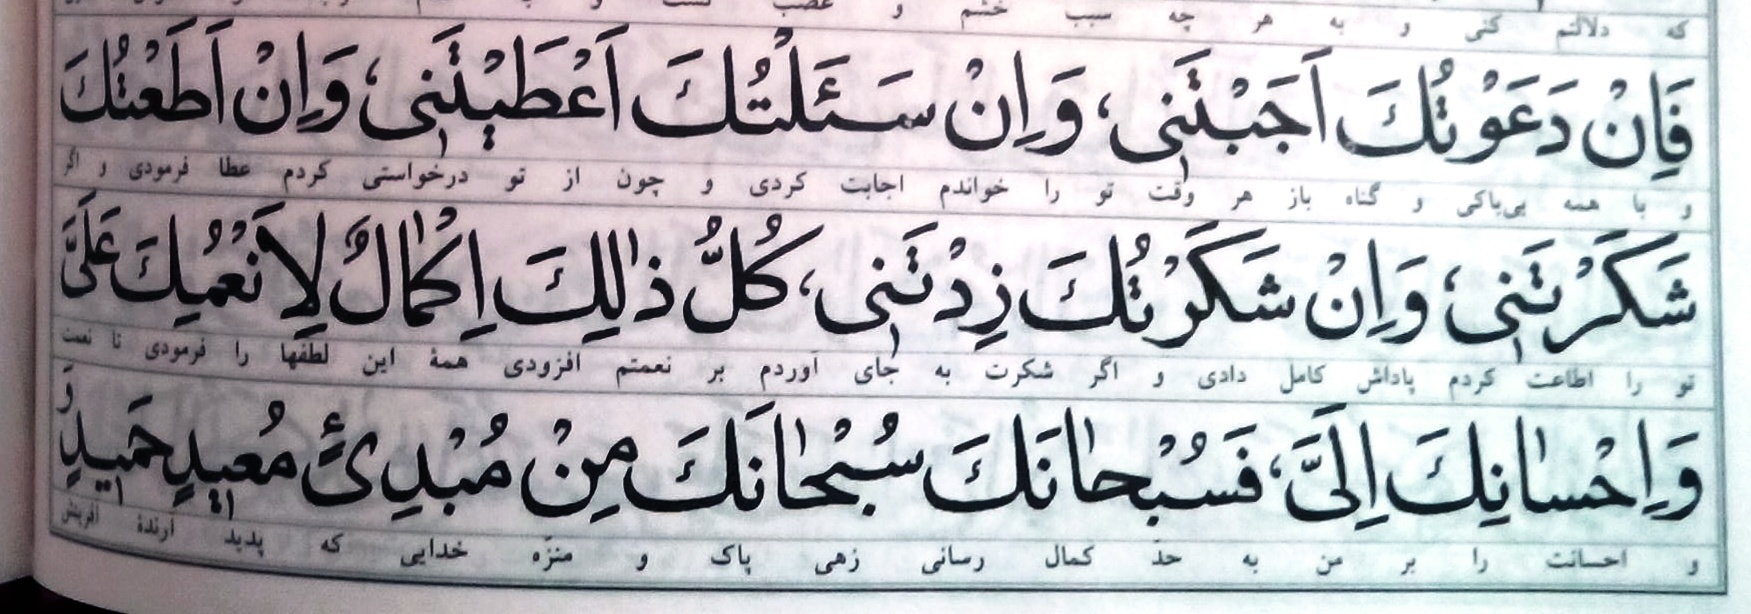 که دلالتم کنی و به هر چه سبب خشم و غضب
فَاِنْ دَعَوْتُكَ اَجَبْتَنى، وَاِنْ سَئَلْتُكَ اَعْطَيْتَنى، وَاِنْ اَطَعْتُكَ
و با همه بی‌باکی و گناه باز هر وقت تو را خواندم اجابت کردی و چون از تو درخواستی کردم عطا فرمودی و اگر
شَكَرْتَنى، وَاِنْ شَكَرْتُكَ زِدْتَنى، كُلُّ ذٰلِكَ اِكْمٰالٌ لِاَنْعُمِكَ عَلَىَّ
تو را اطاعت کردم پاداش کامل دادی و اگر شکرت به جای آوردم بر نعمتم افزودی همهٔ این لطفها را فرمودی تا نعمت
وَاِحْسٰانِكَ اِلَىَّ، فَسُبْحٰانَكَ سُبْحٰانَكَ مِنْ مُبْدِئٍ مُعيدٍ حَميدٍ وَ
و احسانت را بر من به حدّ کمال رسانی زهی پاک و منزّه خدایی که پدید آرندهٔ آفرینش